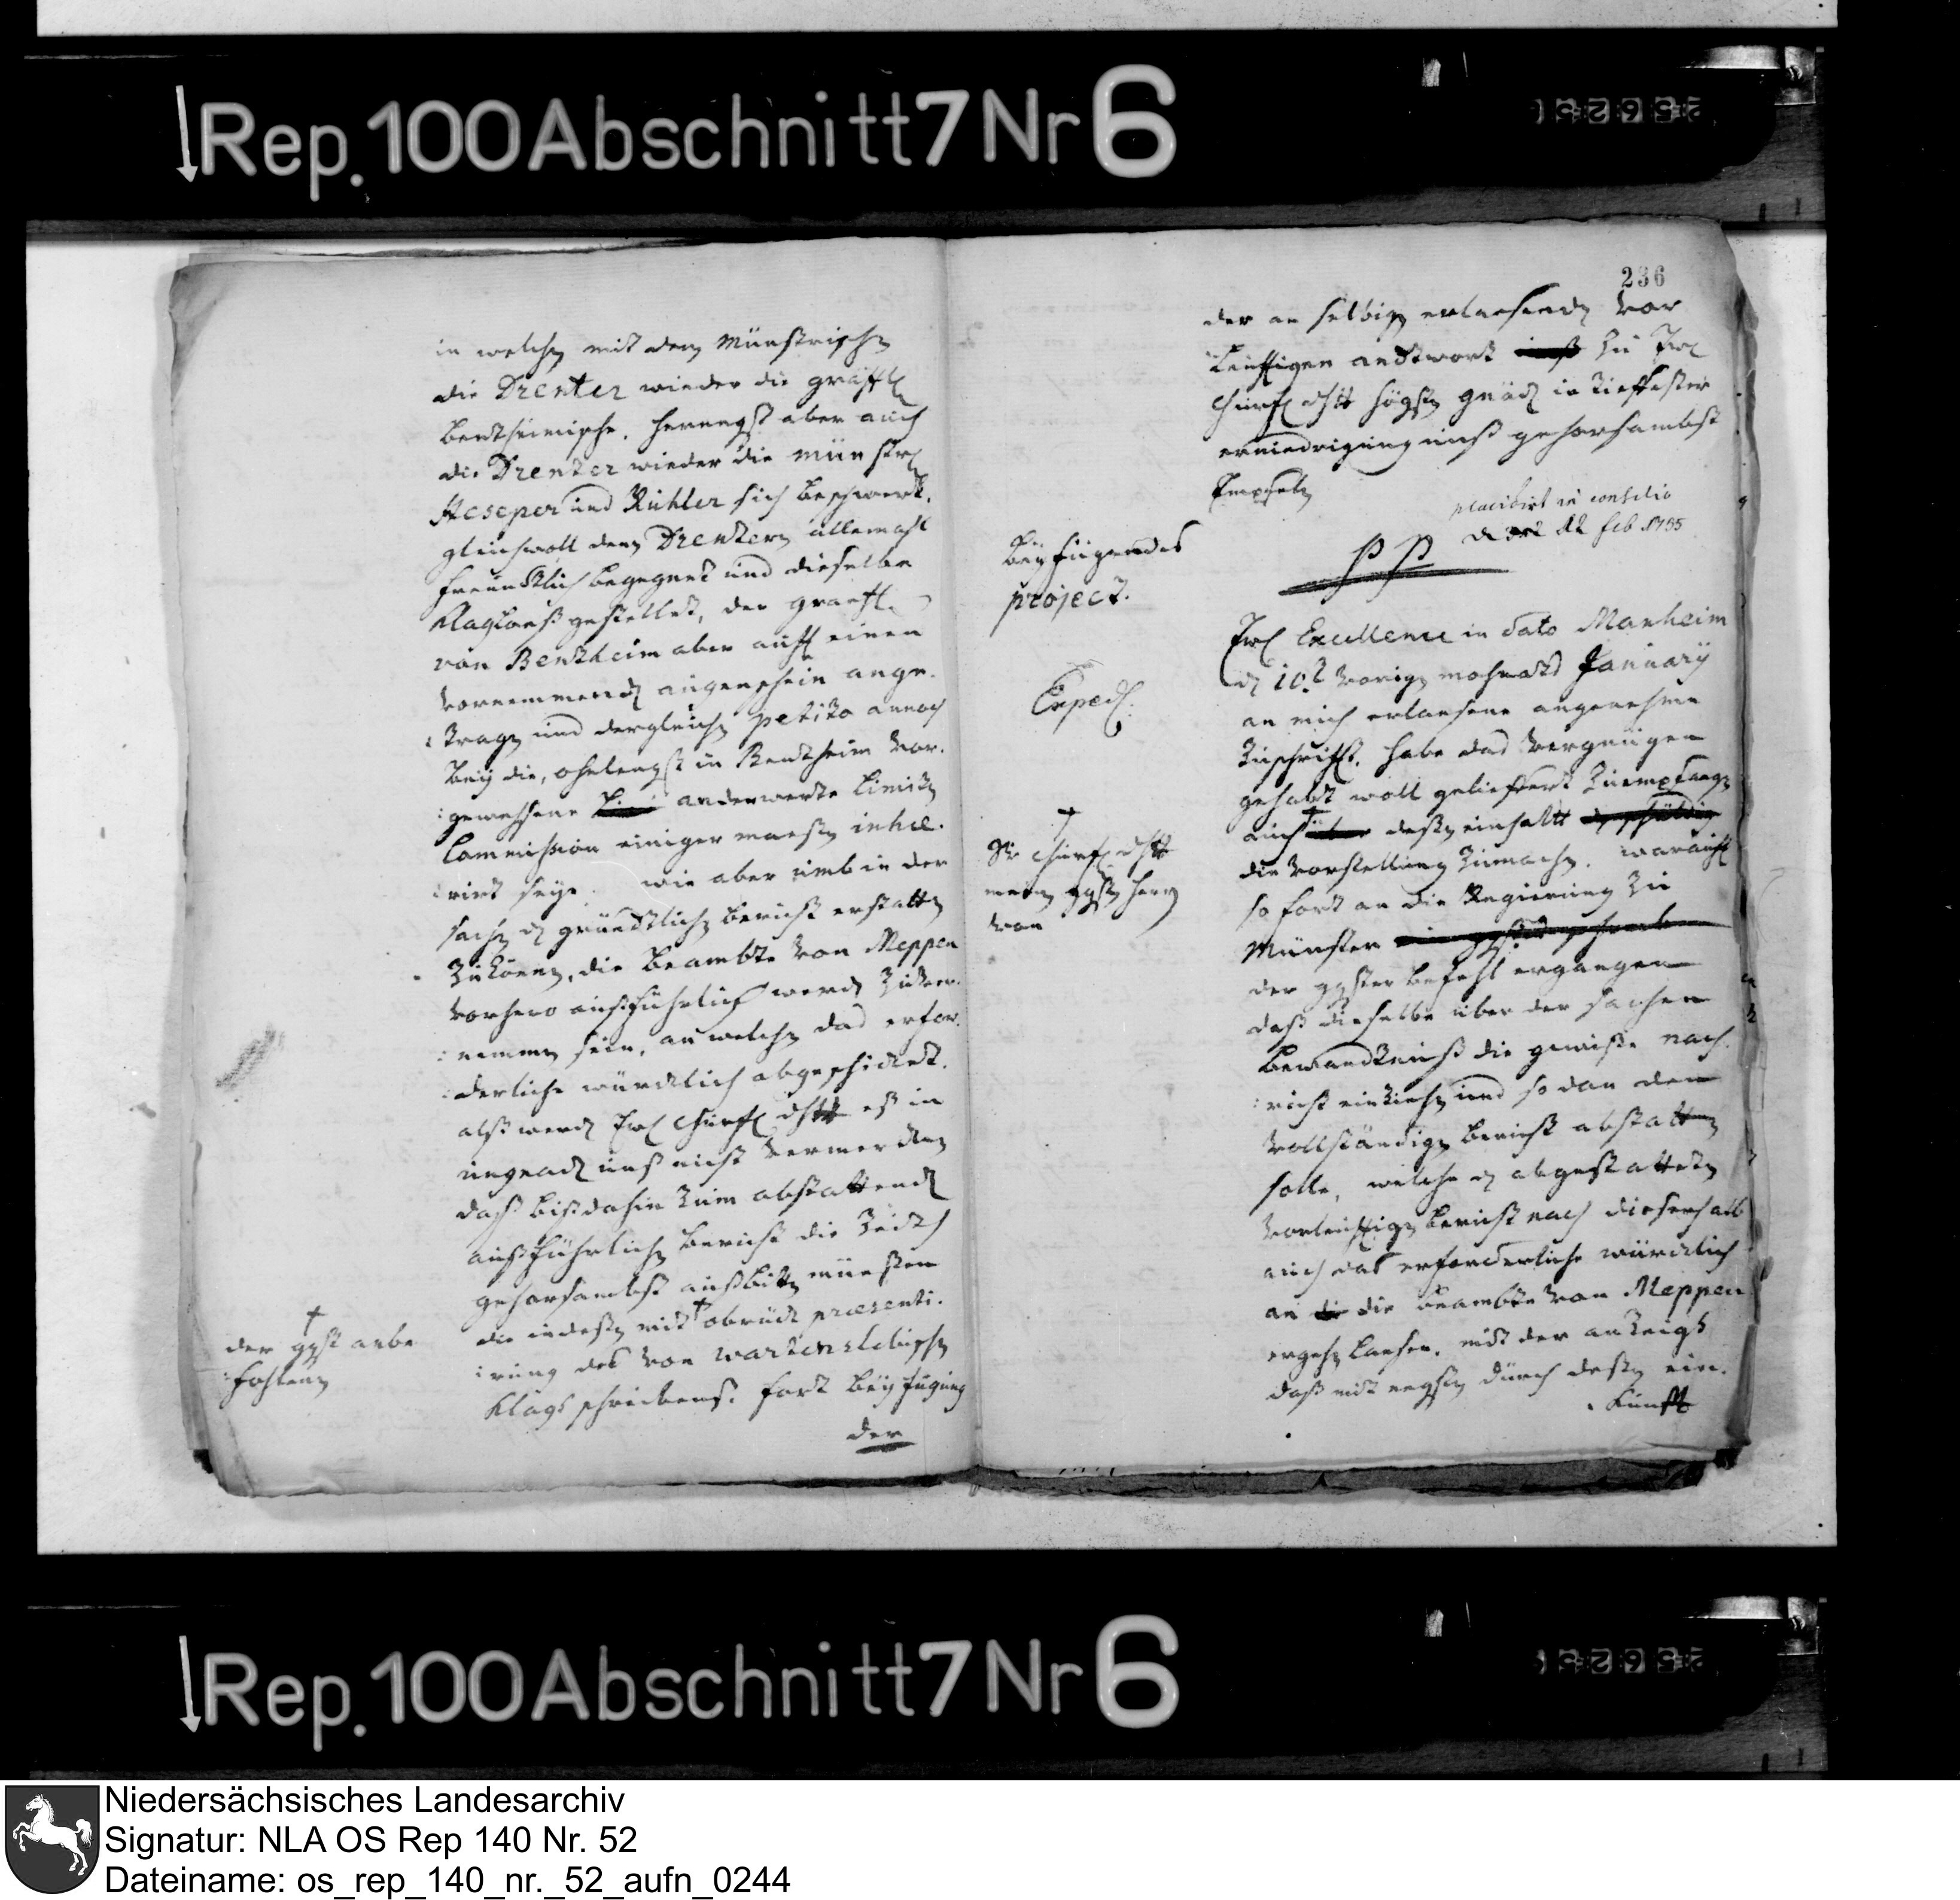 Rep. 100 Abschnitt 7 Nr 6
in welchen mit den Münstrischen
die Drenter wieder die gräffl
bentheimische, hernegst aber auch
die Drenter wieder die münstr
Heseper und Rühler sich beschwert,
gleichwoll den Drentern allemahl
freundtlich begegnet und dieselbe
klagloeß gestellet, der graeffl
von Bentheim aber auff einen
vornemmenden augenschein ange-
:tragen und dergleichen petito annoch
bey die, ohnlengst in Bentheim vor-
:gewehsene anderwerte limiten
Commission einiger maeßen inhae-
:rirt seye. wie aber umb in der
sachen den gründtlichen bericht erstatten
zu können, die beambte von Meppen
vorhero außführlich werden zu ver-
:nemmen sein, an welche das erfor-
:derliche würcklich abgeschicket.
alß werden Ew Churf dhltt eß in
ungnaden unß nicht vermercken
daß biß dahin zum abstattenden
außführlichen bericht die Zeith
gehorsambst außbitten müeßen
die indeßen mit obruck praesenti-
:rung des von wartenslebischen
klagschreibens. fort beyfügung
der
†
der ggst anbe
:fohlenen
236
der an selbigen erlaesenden vor
leuffigen andtwort zu Ew
Churf dhltt högsten gnaden in tieffester
erniedrigung unß gehorsambst
Empfehlen
placidirt in consilio
den 22 feb 1755
Beyfügendes
project.
PP
Exped.
Ew Excellence in dato Manheim
den 10t vorigen mohnats January
an mich erlaesene angenehme
Zuschrifft, habe das vergnügen
gehabt woll gelieffert zu empfangen
auch deßen einhalt
die vorstellung zumachen. warauff
so fort an die Regierung zu
Münster
der ggster befehl ergangen
daß dieselbe über der sachen
bewandtnuß die gewiße nach-
:richt einziehen und so dan den
vollständigen bericht abstatten
solle, welche den abgestatteten
vorleuffigen bericht nach dieserhalb
auch das erforderliche würcklich
an die beambte von Meppen
ergehen laesen. mit der anzeige
daß mit negsten durch deßen ein-
:kunfft
†
Sr Churf dhltt
mein ggsten herrn
von
Rep. 100 Abschnitt 7 Nr 6
Niedersächsisches Landesarchiv
Signatur: NLA OS Rep 140 Nr. 52
Dateiname: os_rep_140_nr._52_aufn_0244